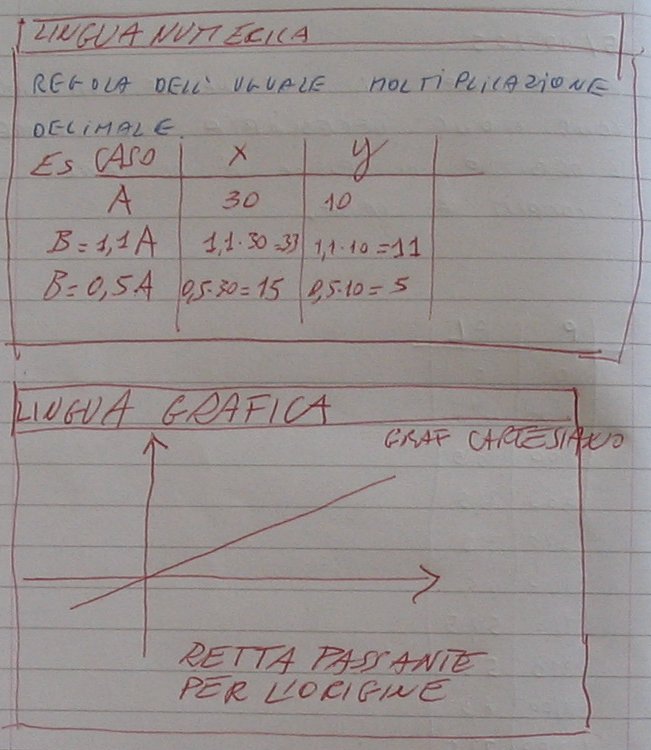 LINGUA NUMERICA
REGOLA DELL' UGUALE MOLTIPLICAZIONE
DECIMALE.
ES CASO x y
A 30 10
B = 1,1 A 1,1·30=33 1,1·10=11
B = 0,5·A 0,5·30=15 0,5·10= 5
LINGUA GRAFICA
GRAF CARTESIANO
RETTA PASSANTE
PER L'ORIGINE